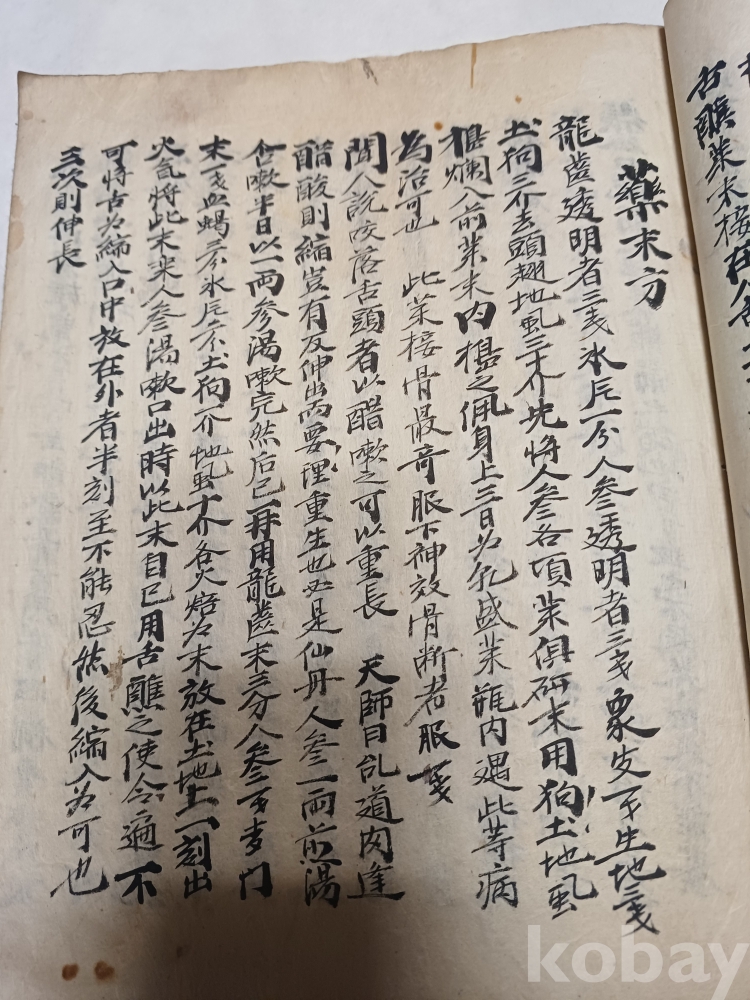 舌醮藥末接在
藥末方
龍齒透明者三戔氷片一分人參透明者三戔象皮一戔生地三戔
土狗三介去頭翅地風三十介先將人參各項藥俱研末用狗土地風
椹爛入前藥末內榲之佩身上三日為乾盛藥甁內遇此等病
為治可也 此藥接骨最奇服下神效骨斷者服一戔
聞人說咬落舌頭者以醋嗽之可以重長 天師曰乱道肉逢
醋酸則縮豈有反伸出而要理重生也必是仙丹人參一兩煎湯
含嗽半日以一兩參湯嗽完然后已再用龍齒末三分人參一戔麦门
末一戔血蝎三分氷片二分土狗一介地虱十介各火焙為末放在土地上一刻出
火氣將此末來人參湯嗽口出時以此末自己用舌醮之使令遍不
可將舌為縮入口中放在外者半刻至不能忍然後縮入為可也
三次則伸長
kobay